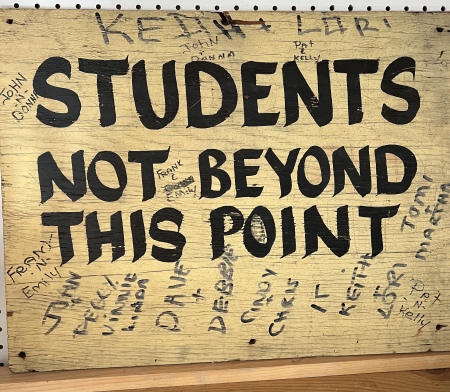 KEITH + LORI
JOHN
&
DONNA
PAT
&
KELLY
JOHN
-N-
DONNA
STUDENTS
NOT BEYOND
FRANK
&
EMILY
THIS POINT
TOM /
MARTHA
FRANK
-N-
Emily
JOHN
+
PEGGY
VINNIE
LINDA
DAVE
+
DEBBIE
CINDY
+
CHRIS
KEITH
+
LORI
PAT
-N-
Kelly